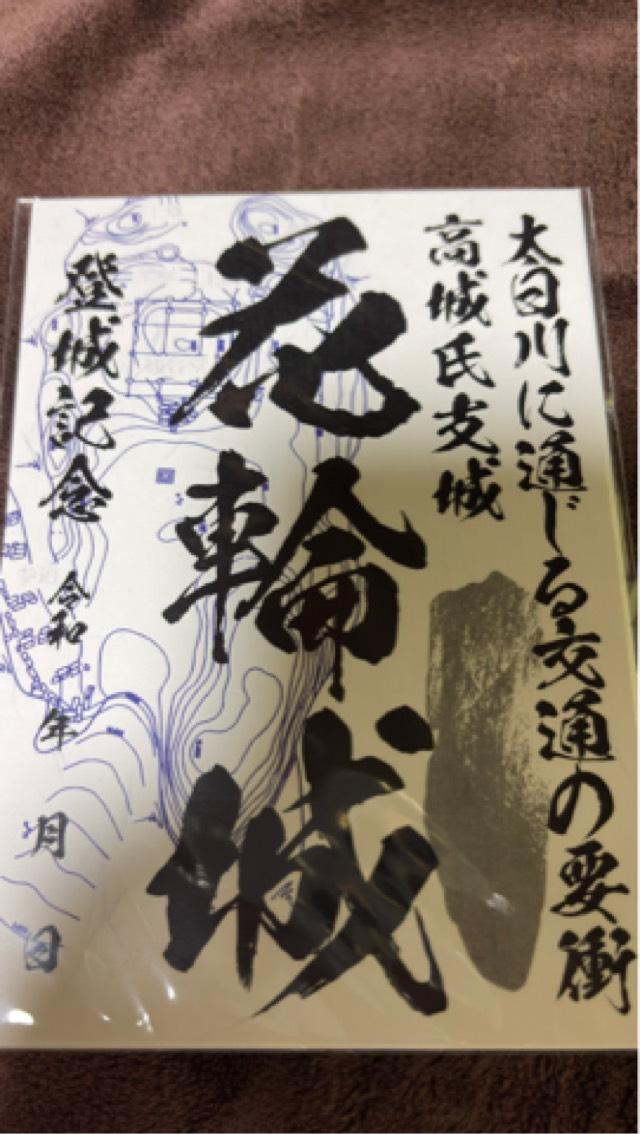 太日川に通じる交通の要衝
高城氏支城
花輪城
登城記念 令和 年 月 日